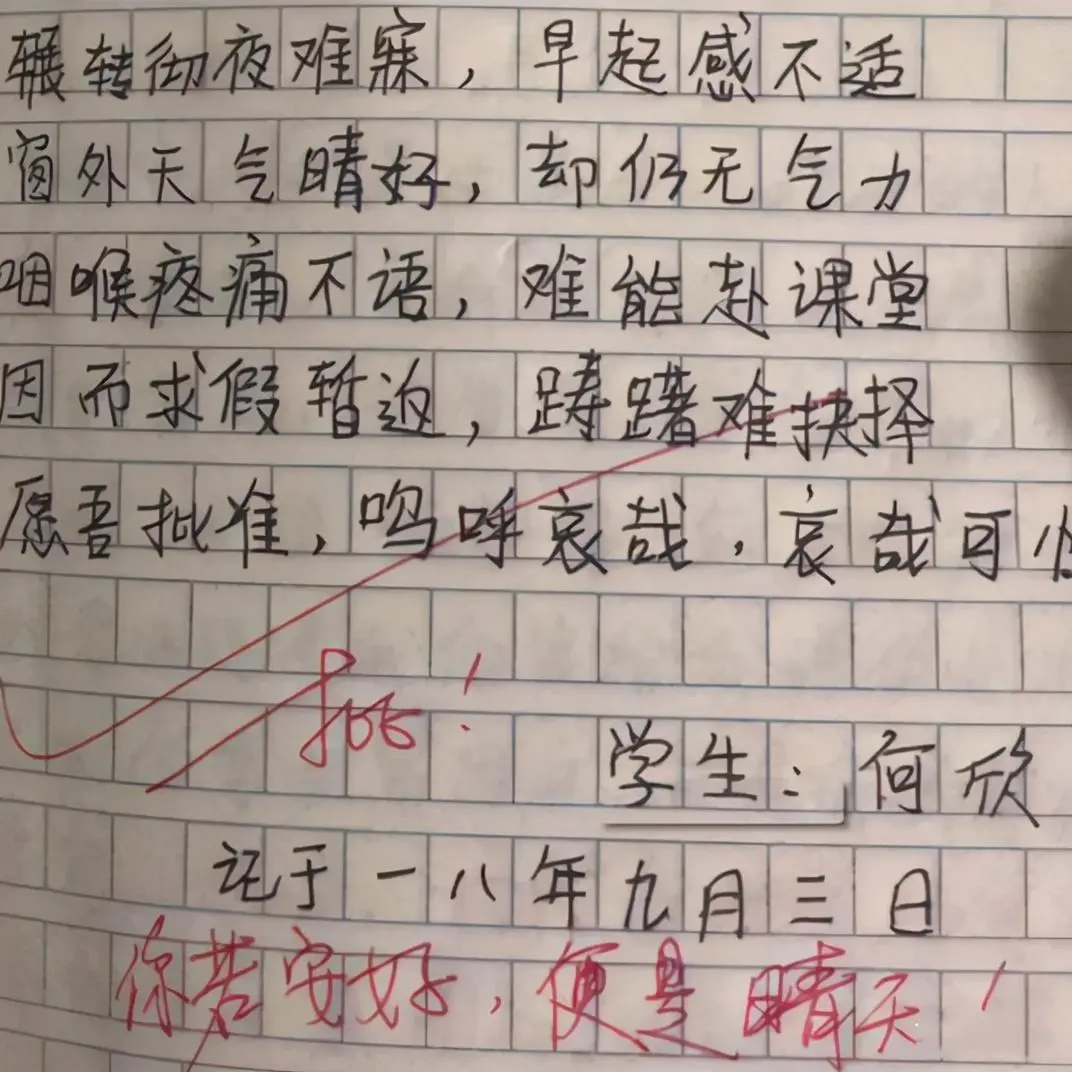 辗转彻夜难寐，早起感不适
窗外天气晴好，却仍无气力
咽喉疼痛不语，难能赴课堂
因而求假暂返，踌躇难抉择
愿吾批准，呜呼哀哉，哀哉可
批！
学生：何欣
记于一八年九月三日
你若安好，便是晴天！